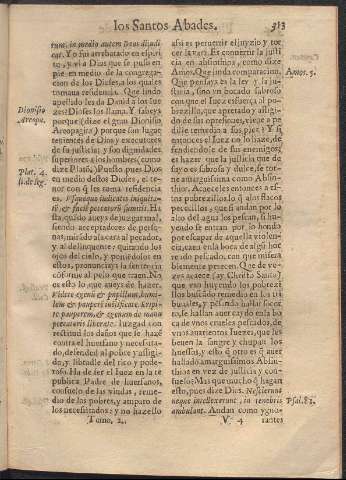 los Santos Abades. 313
runt, in medio autem Deos dijudi-
cat. Yo fui arrebatado en espiri-
to, y vi a Dios que se puso en
pie en medio de la congrega-
cion de los Dioses, a los quales
tomaua residencia. Que lindo
apellido les da Dauid a los jue-
zes: Dioses los llama. Y sabeys
porque (dize el gran Dionisio
Areopagita) porque son lugar
tenientes de Dios y executores
de su justicia; y son dignidades
superiores a los hombres, como
dize Platõ.) Puesto pues Dios
en medio destos Dioses, el te-
nor con q̃ les toma residencia
es. Vsquequo iudicatis iniquita-
tẽ & facies peccatorũ sumitis. Ha-
sta quãdo aueys de juzgar mal,
siendo acceptadores de perso-
nas, mirãdo a la cara al pecador,
y al delinquente, y quitando los
ojos del cielo, y poniẽdolos en
estos, pronunciays la sentencia
cõforme al pelo que traen. No
es esto lo que aueys de hazer.
Iudicate egenũ & pupillum, humi-
lem & pauperẽ iustificate. Eripi-
te pauperem, & egenum de manu
peccatoris liberate. Iuzgad con
rectitud los daños que se hazẽ
contra el huerfano y necessita-
do, defended al pobre y afligi-
do, y libralde del rico y pode-
roso. Ha de ser el Iuez en la re
publica Padre de huerfanos,
consuelo de las viudas, reme-
dio de los pobres, y amparo de
los necessitados: y no hazello
Tomo, 2.
Dionisio
Areopa.
Plat. 4.
li. de leg.
assi es peruertir el juyzio y tor
cer la vara. Es conuertir la justi
cia en absinthios, como dize
Amos. Que linda comparacion.
Que pensays es la ley y la ju-
sticia, sino vn rio dulce sabroso
con que el Iuez esfuerça al po-
brezillo, que apretado y afligi-
do de sus opressores, viene a pe
dille remedio a sus pies? Y si
entonces el Iuez con lo haze, de-
fendiendole de sus enemigos,
es hazer que la justicia que de
suyo es sabrosa y dulce, se tor-
ne amarguissima como Absin-
thio. Acaeceles entonces a es-
tos pobrezillos lo q̃ a los flacos
pececillos, que si andan por lo
alto del agua los pescan, si hu-
yendo se entran por lo hondo
por escapar de aquella violen-
cia, caen en la boca de algũ hor
rẽdo pescado, con que misera
blemente perecen. Que de ve-
zes acaece (ay Christo Santo,)
que vao huyendo los pobrezi-
llos buscãdo remedio en los tri
bunales, y pensando hallar soco
rro, se hallan auer caydo en la bo
ca de vnos crueles pescados, de
vnos auarientos Iuezes, que les
beuen la sangre y chupan los
huessos, y esto q̃ otro es q̃ auer
hallado amarguissimos Absin-
thios en vez de justicia y con-
suelos? Mas que mucho q̃ hagan
esto, pues dize Dios. Nescierunt
neque intellexerunt, in tenebris
ambulant. Andan como ygno-
V. 4 rantes
Amos. 5.
Psal. 81.